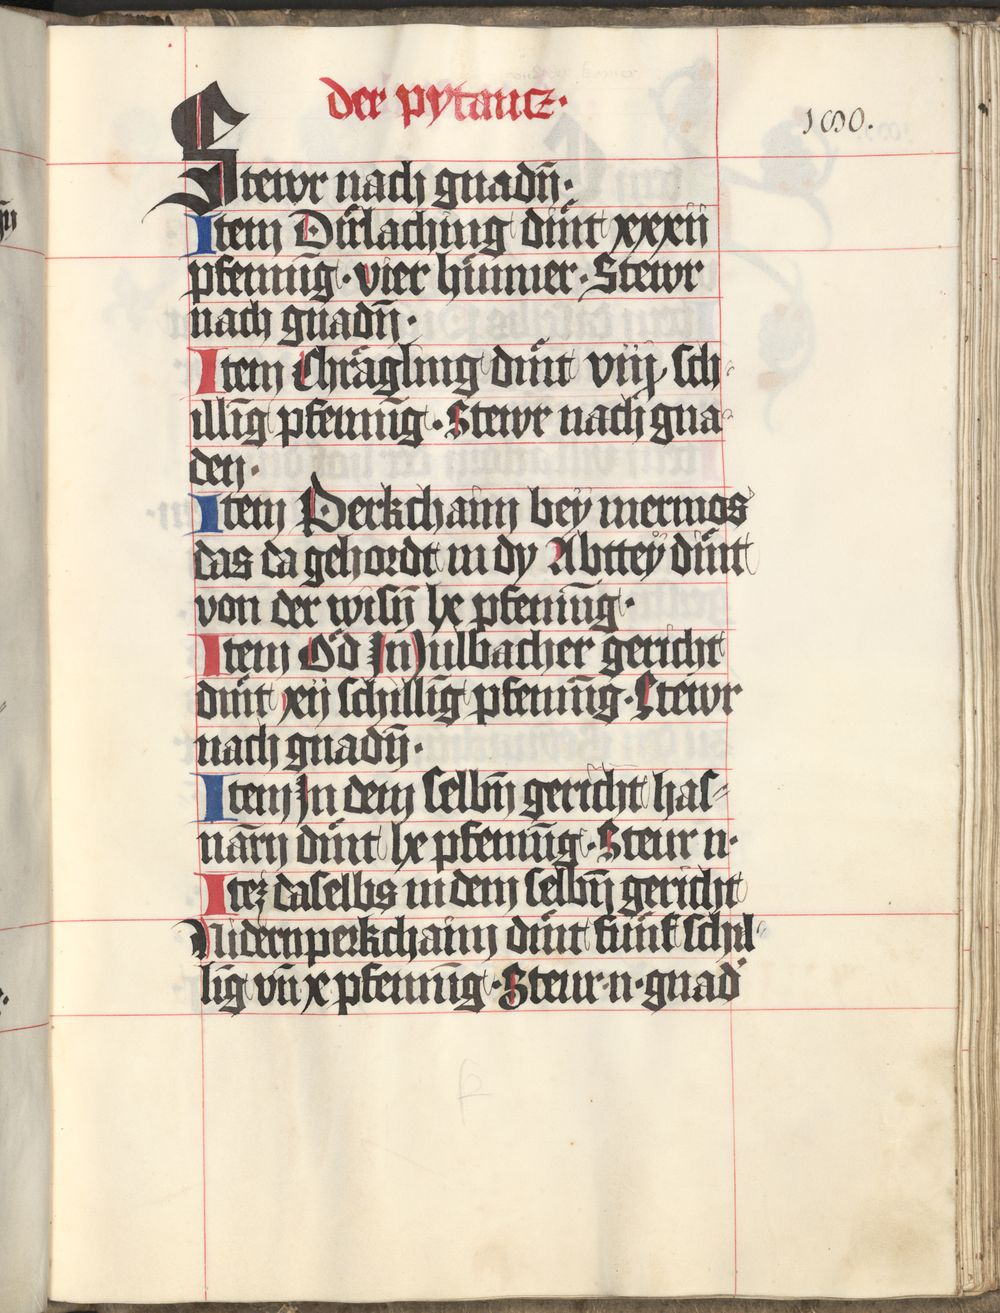 der pytancz·
100.
Stewr nach gnadn̄·
Item Dürlaching dint xxxii
pfennīg · vier hūnner · Stewr
nach gnadn̄ ·
Item Chrägling dint viij sch
illīg pfennīg · Stewr nach gna
den ·
Item Perkchaim bey mermos
das da gehordt in dy Abttey dint
von der wisn̄ lx pfennīg ·
Item Öd In Julbacher gericht
dint xij schillīg pfennīg · Stewr
nach gnadn̄ ·
Item In dem selbn̄ gericht has-
nārn dint lx pfennīg · Steur n·
Itez daselbs in dem selbn̄ gericht
Nidernperkchaim dint funf schil
lig vn̄ x pfennīg · Steur·n·gnad